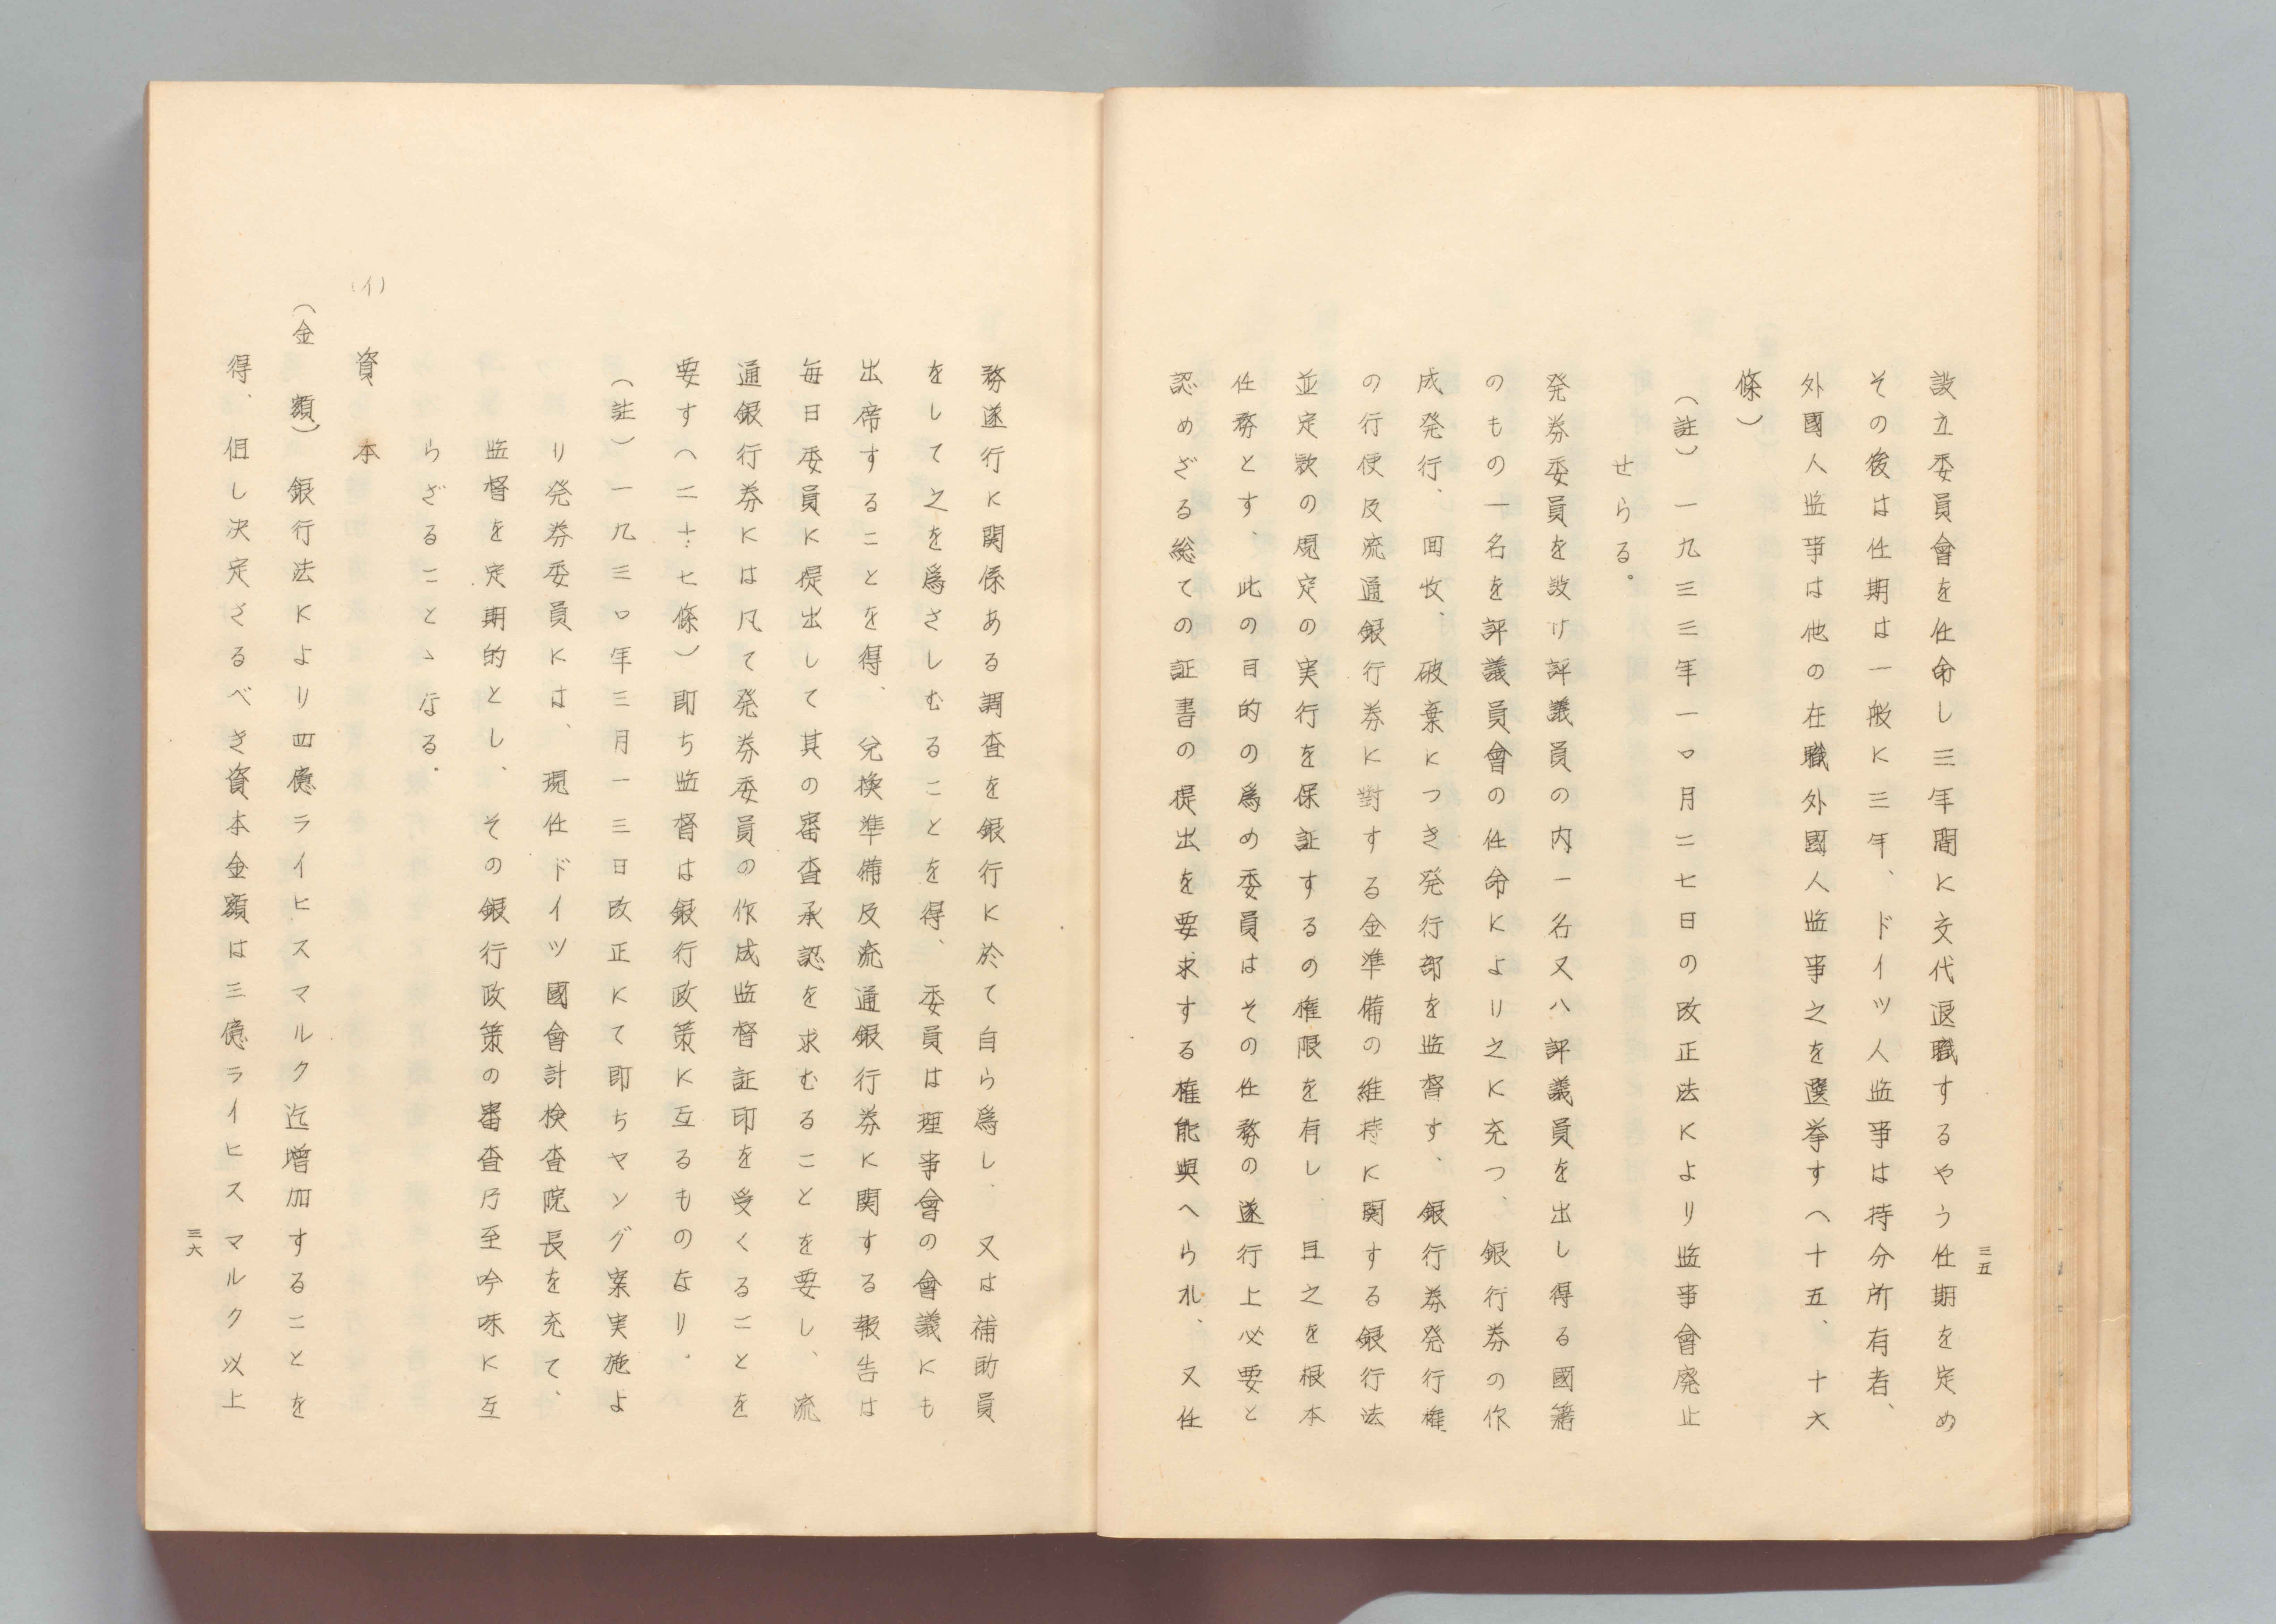 設立委員會を任命し三年間に交代退職するやう任期を定め
その後は任期は一般に三年、ドイツ人監事は持分所有者、
外國人監事は他の在職外國人監事之を選挙す（十五、十六
條）
（註）一九三三年一〇月二七日の改正法により監事會廃止
せらる。
発券委員を設け評議員の内一名又ハ評議員を出し得る國籍
のもの一名を評議員會の任命により之に充つ、銀行券の作
成発行、回收、破棄につき発行部を監督す、銀行券発行権
の行使及流通銀行券に對する金準備の維持に関する銀行法
並定款の規定の実行を保証するの権限を有し、且之を根本
任務とす、此の目的の為め委員はその任務の遂行上必要と
認めざる総ての証書の提出を要求する権能與へられ、又任
三五
務遂行に関係ある調査を銀行に於て自ら為し、又は補助員
をして之を為さしむることを得、委員は理事會の會議にも
出席することを得、兌換準備及流通銀行券に関する報告は
毎日委員に提出して其の審査承認を求むることを要し、流
通銀行券には凡て発券委員の作成監督証印を受くることを
要す（二十七條）即ち監督は銀行政策に亙るものなり。
（註）一九三〇年三月一三日改正にて即ちヤング案実施よ
り発券委員には、現任ドイツ國會計検査院長を充て、
監督を定期的とし、その銀行政策の審査乃至吟味に亙
らざることゝなる。
(イ) 資本
（金額）銀行法により四億ライヒスマルク迄増加することを
得、但し決定さるべき資本金額は三億ライヒスマルク以上
三六